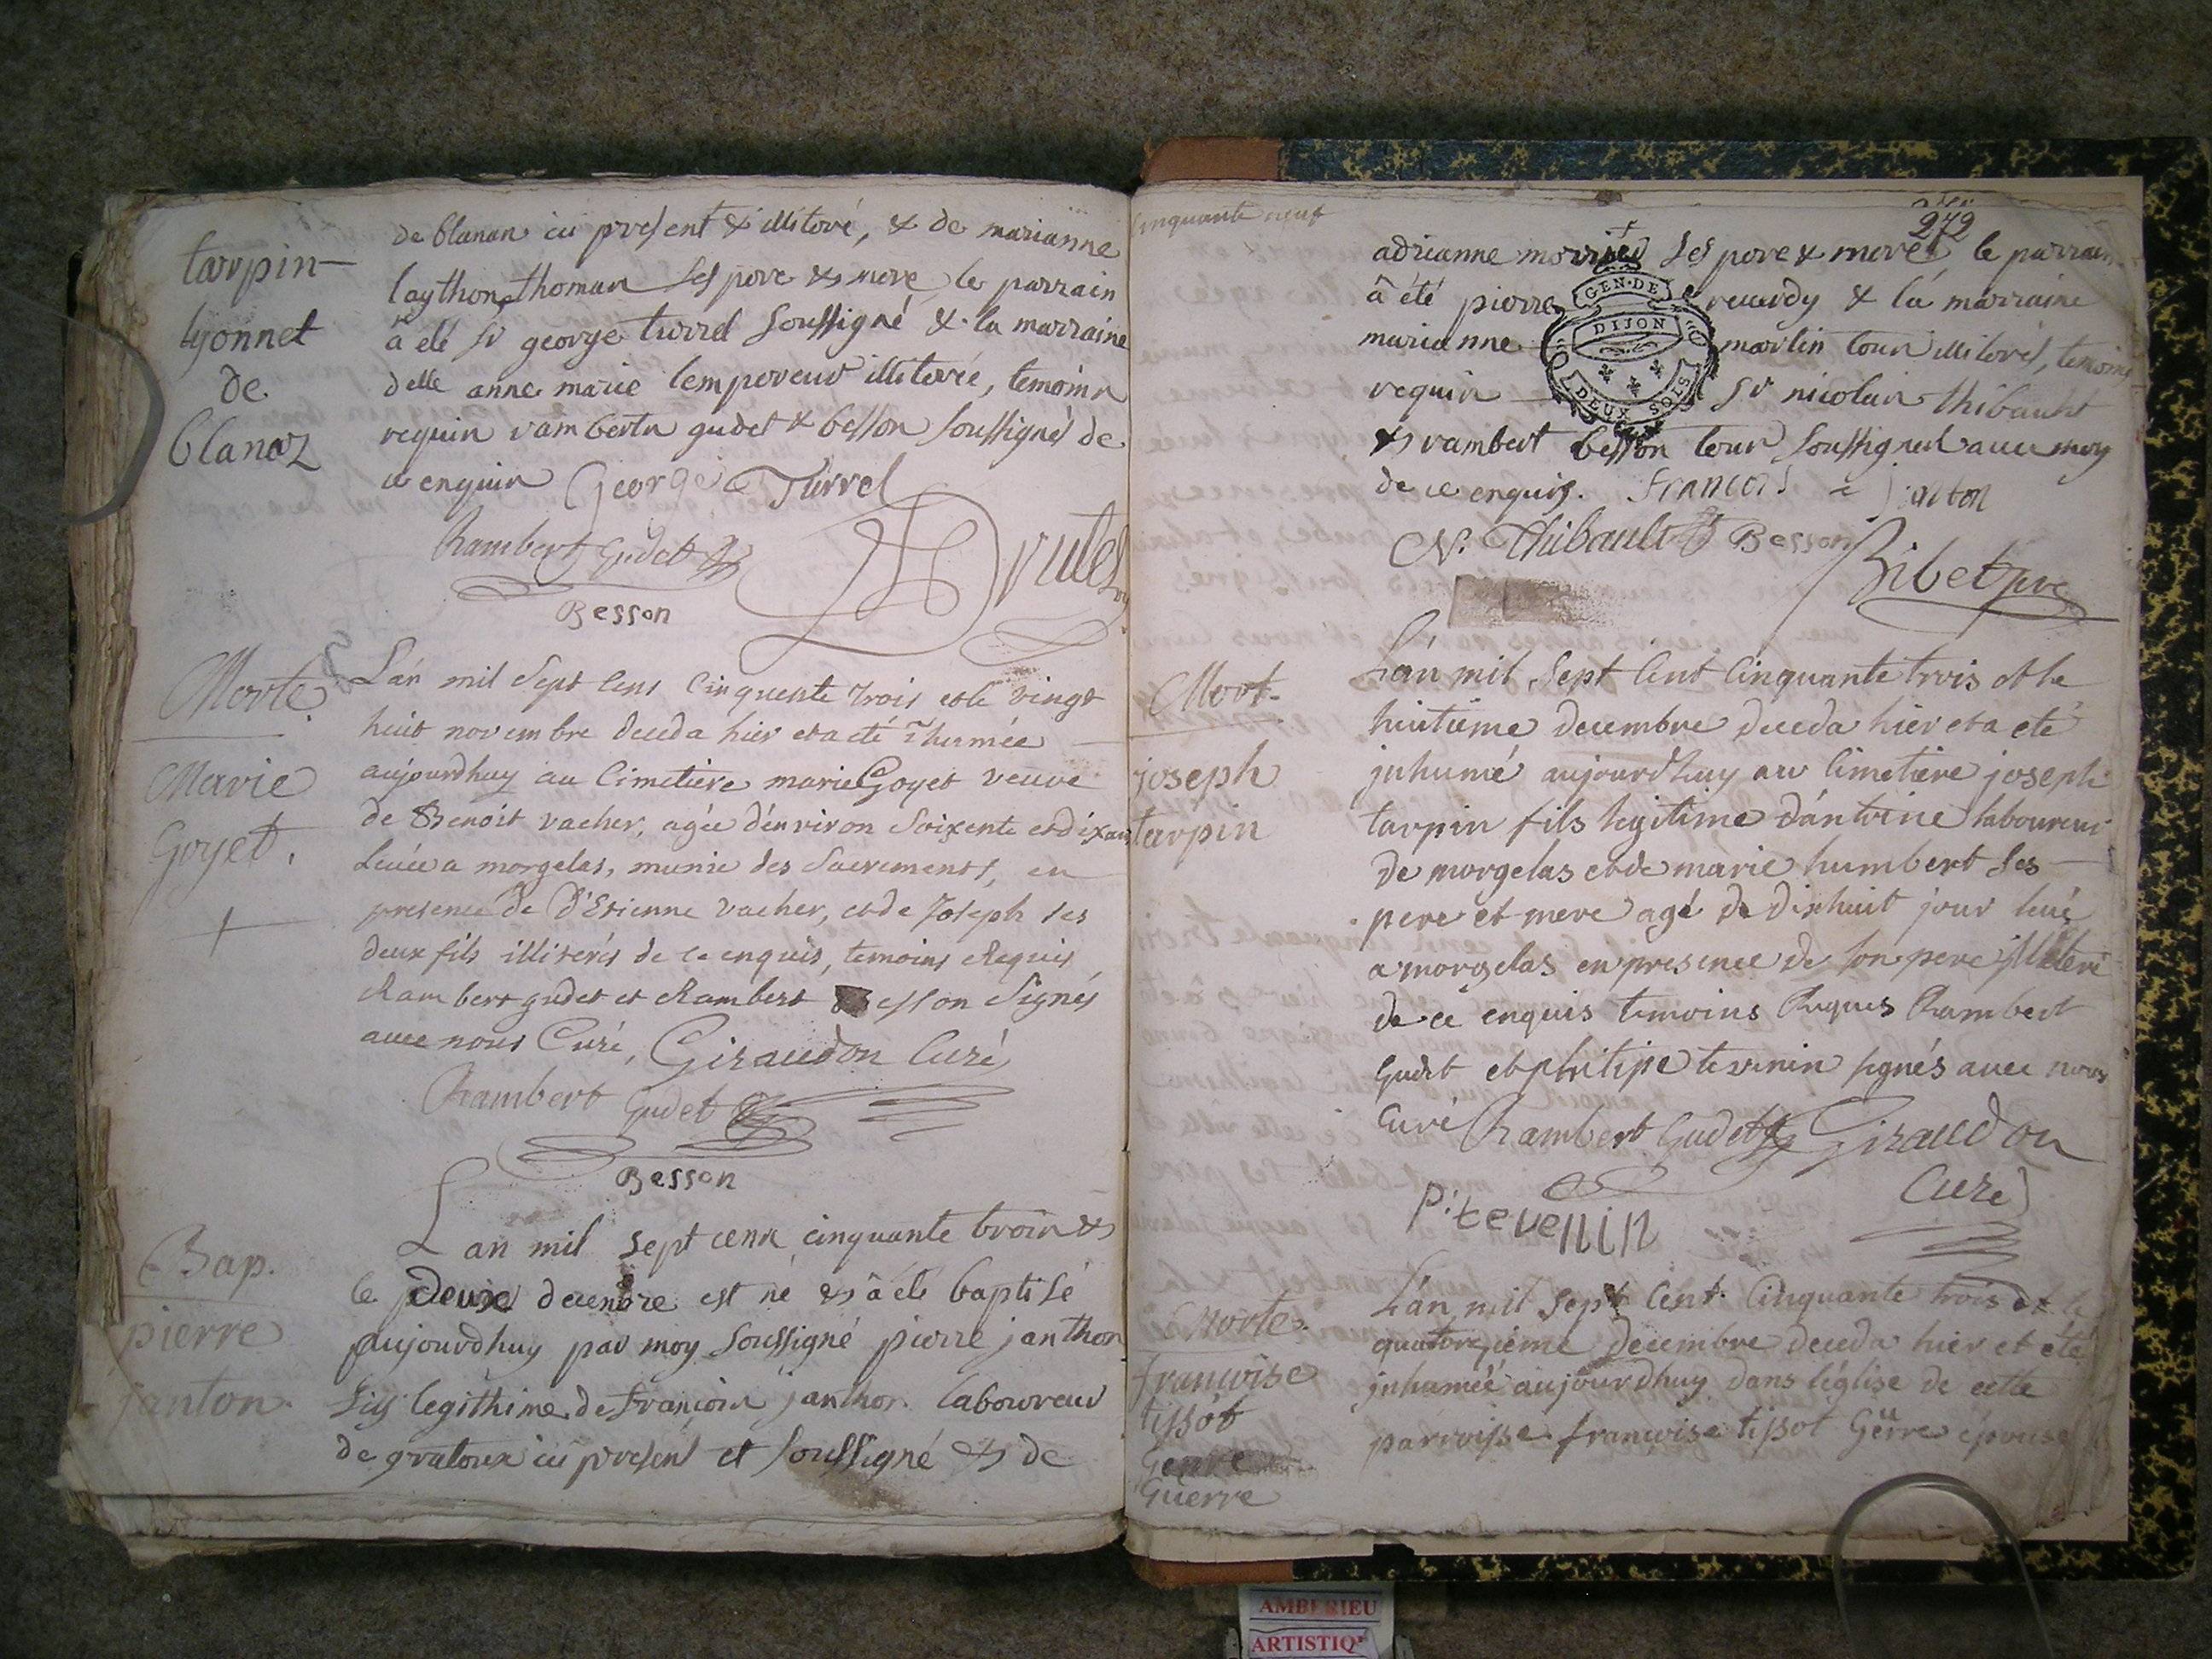 tarpin-
lyonnet
de
blanaz
de blanan ici present & illiteré, & de marianne
laython thoman ses pere & mere le parrain
a eté sr george turrel soussigné & la marraine
delle anne marie lempereur illiterée, temoins
requis rambertn gudet & besson soussignés de
ce enquis George Turrel
Rambert Gudet
Besson
Morte
Marie
Goyet.
L'an mil sept cens cinquente trois et le vingt
huit novembre deceda hier et a eté ĩhumée
aujourdhuy au cimetière marie Goyet veuve
de Benoit vacher, agée d'environ soixente et dix ans
leuée a morgelas, munie des sacrements, en
presence de d'Etienne vacher, et de Joseph ses
deux fils illiterés de ce enquis, temoins Requis
Rambert gudet et Rambert Besson signés
avec nous Curé, Giraudon Curé
Rambert Gudet
Besson
Bap.
pierre
janton.
Lan mil sept cens cinquante trois &
le deuxe decenbre est né & à eté baptisé
aujourdhuy par moy soussigné pierre janthon
fils legithime de françois janthon laboureur
de gratoux ici present et soussigné & de
cinquante neuf
272
adrianne morrier ses pere & mere, le parrain
â été pierre recurdy & la marraine
marianne martin tous illiterés, temoins
requis sr nicolas thibault
& rambert besson tous soussignés avec moy
de ce enquis. francois janton
N. Thibault Besson
Ribet pre
GEN. DE
DIJON
DEUX SOLS
Mort.
joseph
tarpin
L'an mil sept cent cinquante trois et le
huitième decembre deceda hier et a eté
jnhumé aujourdhuy au cimetière joseph
tarpin fils legitime d'antoine laboureur
de morgelas et de marie humbert ses
pere et mere agé de dixhuit jour leué
a morgelas en presence de son pere jlliteré
de ce enquis temoins Requis Rambert
Gudet et philipe tevenin signés avec nous
Curé Rambert Gudet Giraudon
Curé
P: tevenin
Morte.
francoise
tissot
Genre
Guerre
L'an mil sept cent cinquante trois et le
quatorzième decembre deceda hier et été
jnhumée aujourdhuy dans l'église de cette
parroisse francoise tissot Gërre épouse
AMBERIEU
ARTISTIQ